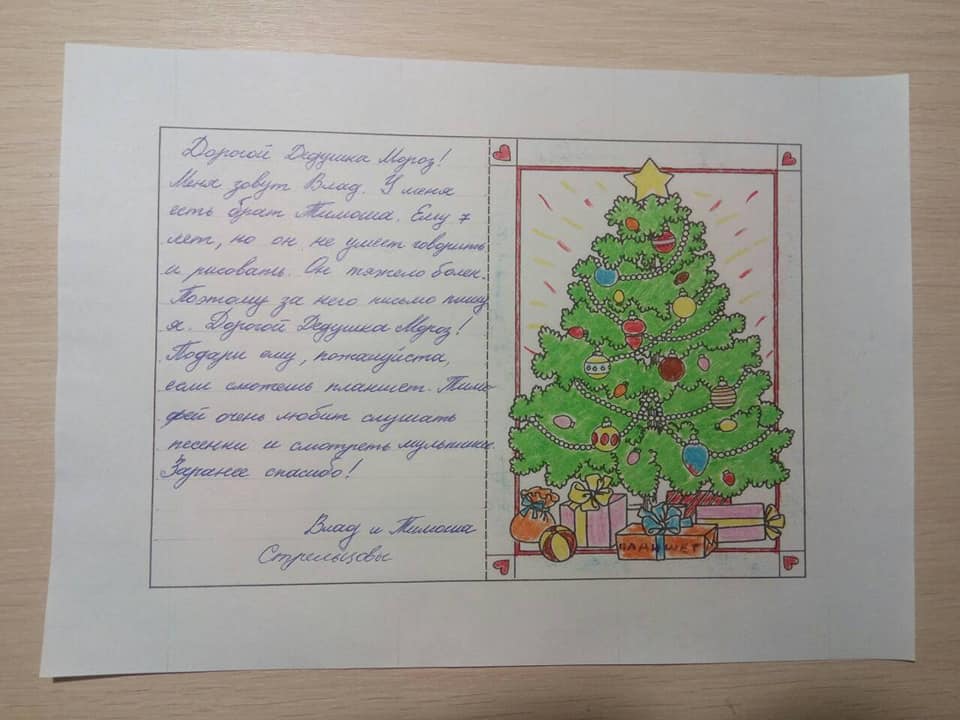 Дорогой Дедушка Мороз!
Меня зовут Влад. У меня
есть брат Тимоша. Ему 7
лет, но он не умеет говорить
и рисовать. Он тяжело болен.
Поэтому за него письмо пишу
я. Дорогой Дедушка Мороз!
Подари ему, пожалуйста,
если сможешь планшет. Тимо-
фей очень любит слушать
песенки и смотреть мультики.
Заранее спасибо!
Влад и Тимоша
Стрельцовы
ПЛАНШЕТ